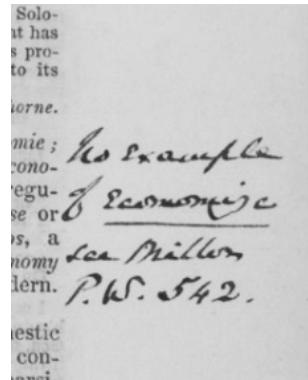 Solo-
nt has
s pro-
to its
orne.
mie;
cono-
regu-
se or
os, a
nomy
dern.
estic
con-
No example
of Economize
see Milton
P.W. 542.